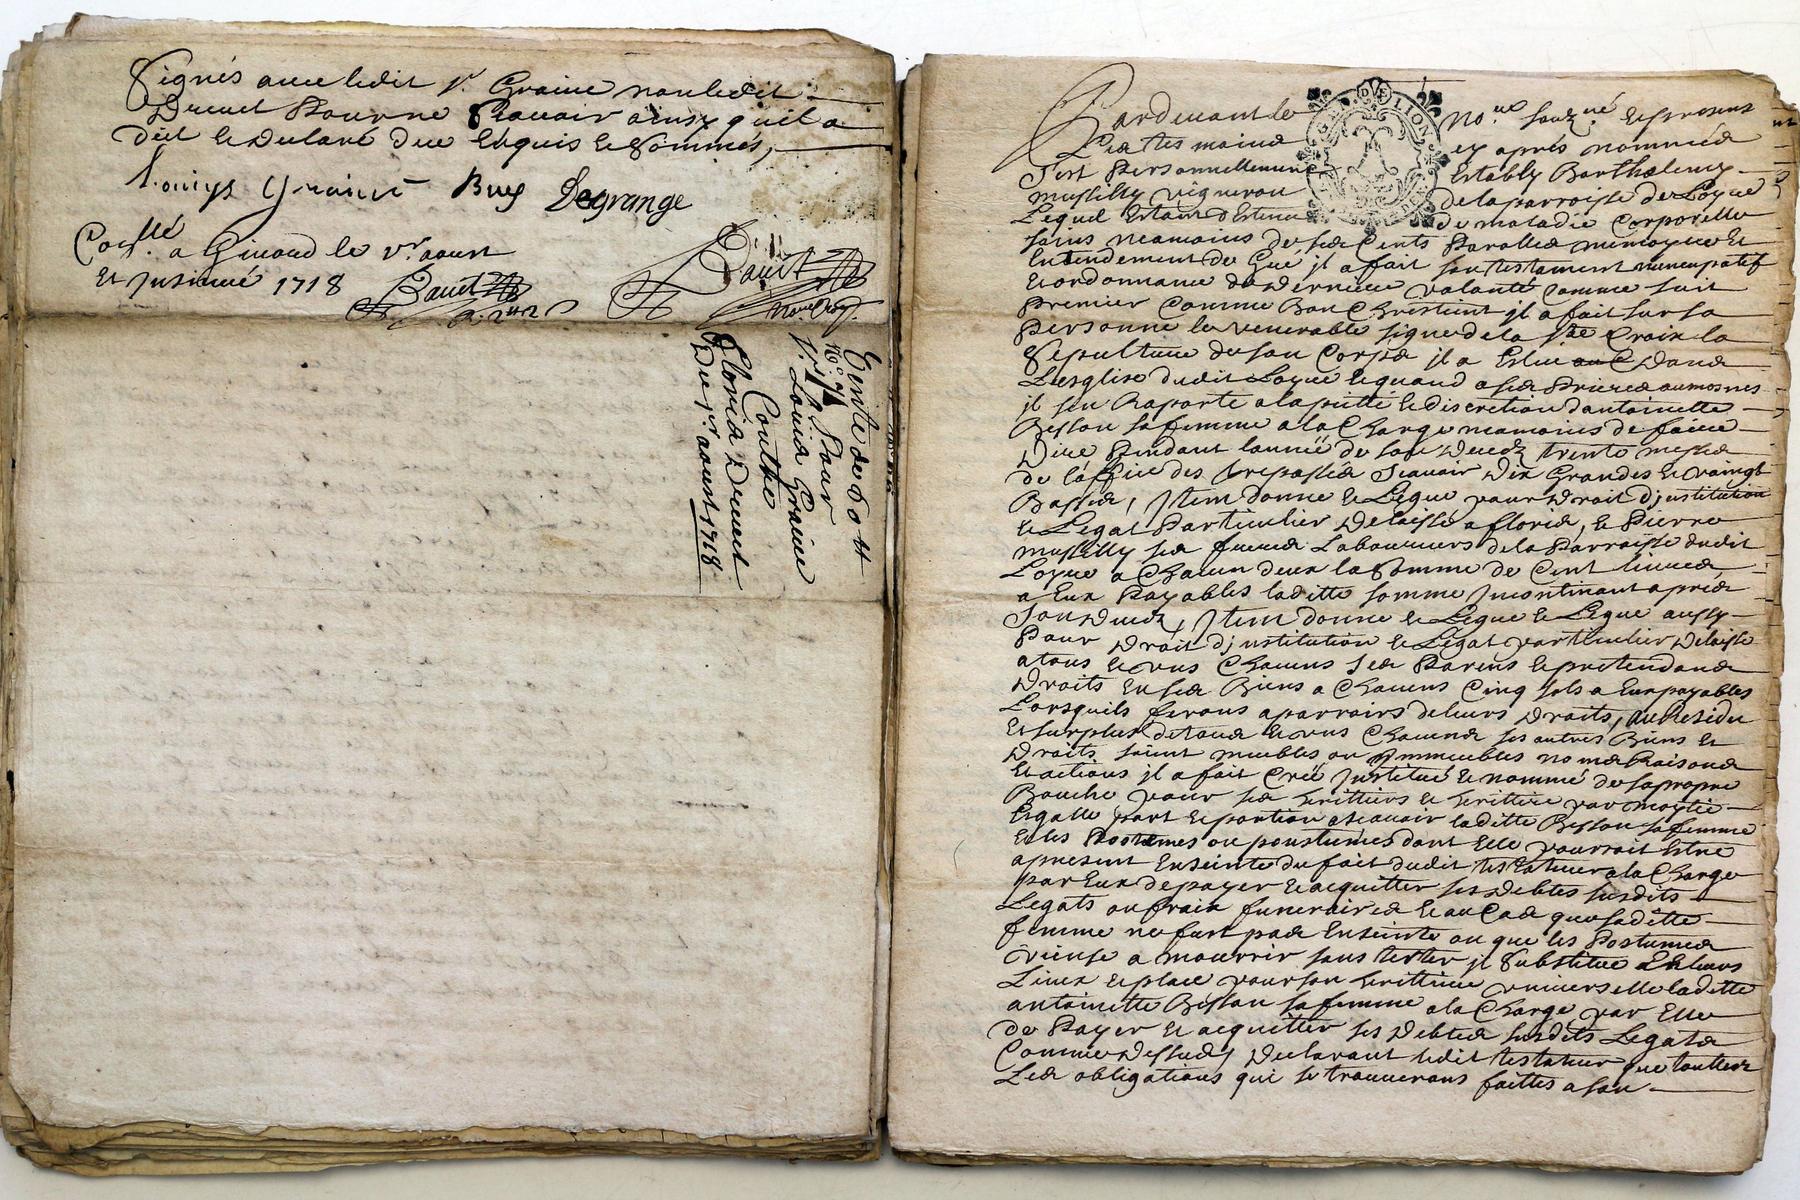 Signés avec ledit Sr. Graine non ledit
Drevet Pour ne Scavoir ainsy quil a
dit et declaré due Enquis et Sommés,
Louiys Graine Bus Degrange
Conllé a Givord le vr. aoust
Et Insinué 1718
Vente de
no. 7
Pour
Sr. Louis Graine
Contre
Floris Drevet
Du jr. aoust 1718
Pardevant le
GE DE LION
No.re souz.né et presens
Les tesmoins
cy après nommés
fust Personnellement
Estably Barthelemy
mussilly vigneron
de la parroisse de Loyre
Lequel Estant detenu
de maladie Corporelle
sains neamoins de ses Cents Parolles memoyre Et
Entendement de Gré jl a fait son testament nuncupatif
Et ordonnance de derniere volonté comme suit
Premier Comme Bon Chrestient jl a fait sur sa
Personne le venerable signe de la Ste Croix la
Sepulture de son Corps jl a Eslue dans
Lesglise dudit Loyre Et quand a ses Prieres aumosnes
jl sen Raporte a la pitié Et discretion dantoinette
Besson sa femme a la Charge neamoins de faire
Dire Pendant lannée de son Decedz trente messes
de loffice des trepassés Scavoir dix Grandes Et vaingt
Basses, Jtem donne Et Legue pour Droit djnstitution
Et Legat Particulier Delaisse a floris, Et Pierre
mussilly ses freres Laboureurs de la Parroisse dudit
Loyre a Chacun deux la Somme de Cent livres
a Eux Payables laditte somme Jncontinant après
Son Decedz, Jtem donne Et Legue Et Legue aussy
Pour Droit djnstitution Et Legat particulier Delaisse
a tous Et uns Chacuns Ses Parens Et pretendans
Droits En ses Biens a Chacuns Cinq sols a Eux payables
Lorsquils feront aparroirs de leurs Droits, au Residu
Et surplus de tous Et uns Chacuns ses autres Biens Et
Droits soient meubles ou Jmmeubles noms Raisons
Et actions jl a fait Créé Jnstitué Et nommé de sa propre
Bouche pour ses herittiers Et herittiere par moytié
Egalle part Et portion Scavoir laditte Besson sa femme
Et les Postumes ou poustumes dont Elle pourroit Estre
apresent Enseinte du fait dudit testateur a la Charge
par Eux de payer Et acquitter ses Debtes susdits
Legats ou fraix funeraires Et au Cas que saditte
femme ne fust pas Enseinte ou que les Postumes
viense a mourrir sans tester jl Substitue En leurs
Lieux Et place pour son herittiere universelle laditte
antoinette Besson sa femme a la Charge par Elle
de Payer Et acquitter ses Debtes susdits Legats
Comme Dessus, Declarant ledit testateur que touttes
Les obligations qui se trouveront faittes a son